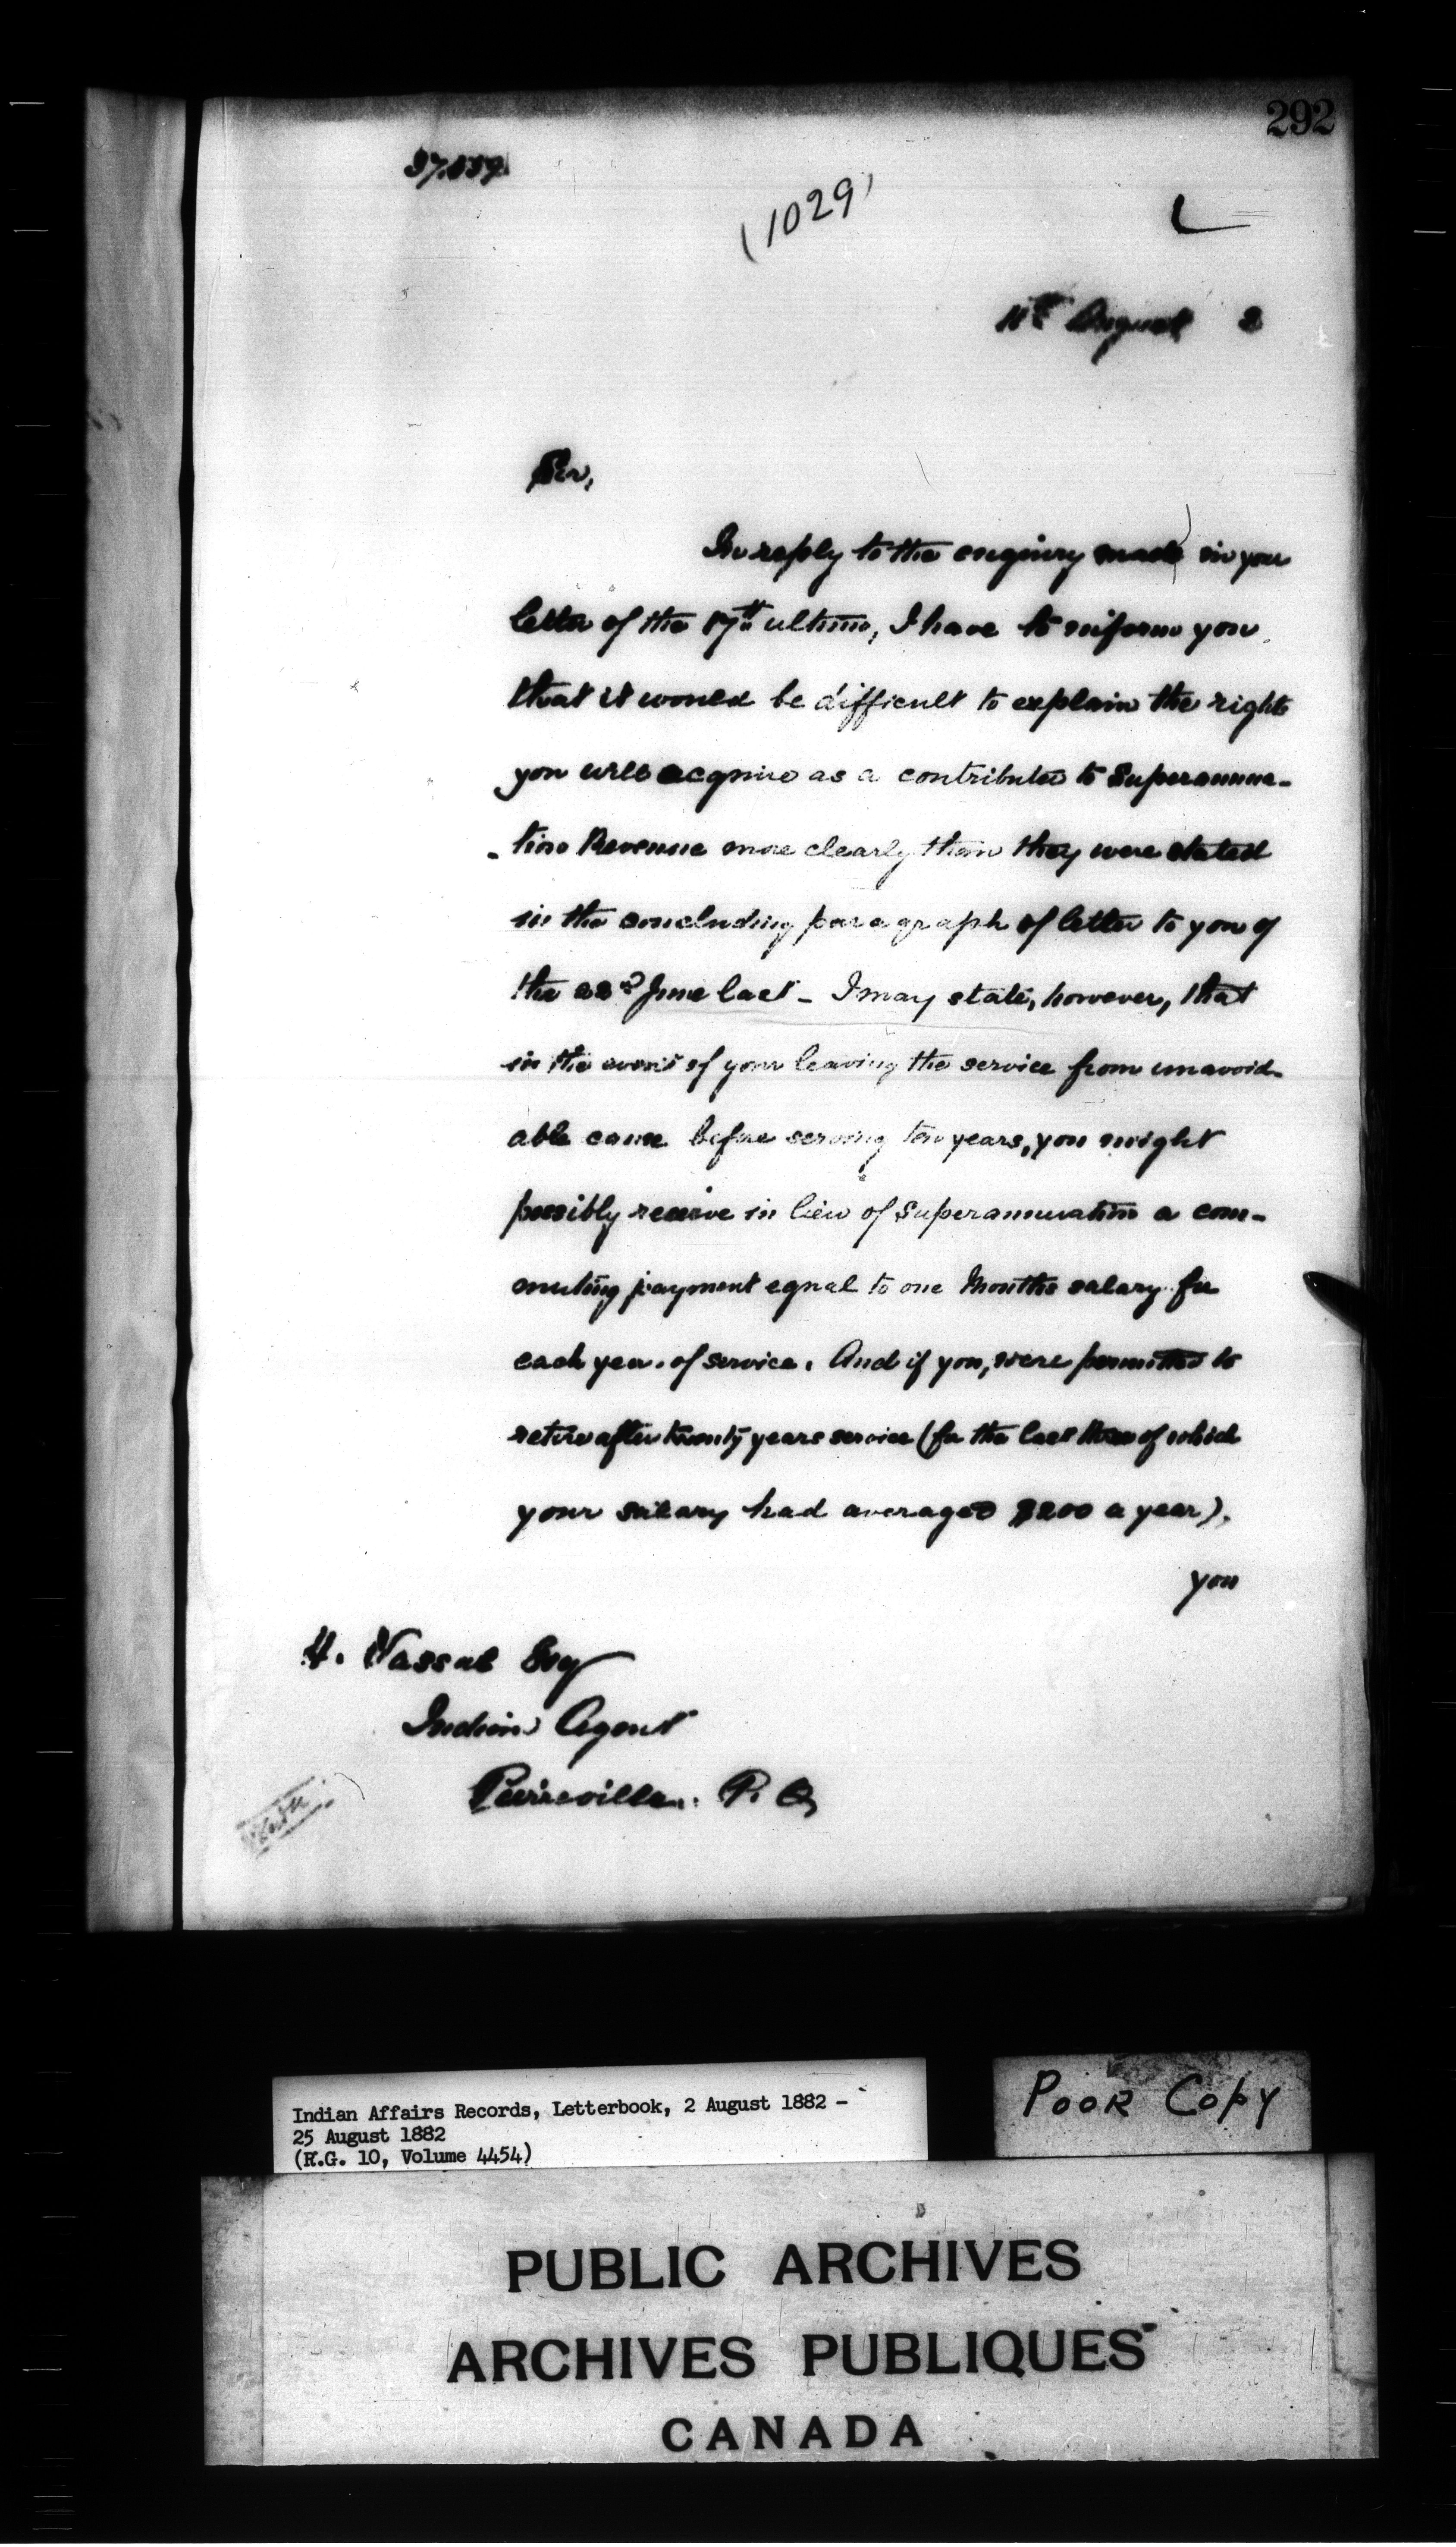 292
37.639
(1029)
L
11th August 2
Sir,
In reply to the enquiry made in your
letter of the 17th ultimo, I have to inform you
that it would be difficult to explain the rights
you will acquire as a contributor to Superannua-
-tion Revenue more clearly than they were stated
in the concluding paragraph of letter to you of
the 22nd June last - I may state, however, that
in the event of your leaving the service from unavoid-
able cause before serving ten years, you might
possibly receive in lieu of Superannuation a com-
muting payment equal to one Months salary for
each year of service. And if you, were permitted to
retire after twenty years service (for the last three of which
your salary had averaged $200 a year),
you
H. Vassal Esq
Indian Agent
Pierreville. P. Q.
Indian Affairs Records, Letterbook, 2 August 1882 -
25 August 1882
(R.G. 10, Volume 4454)
POOR COPY
PUBLIC ARCHIVES
ARCHIVES PUBLIQUES
CANADA